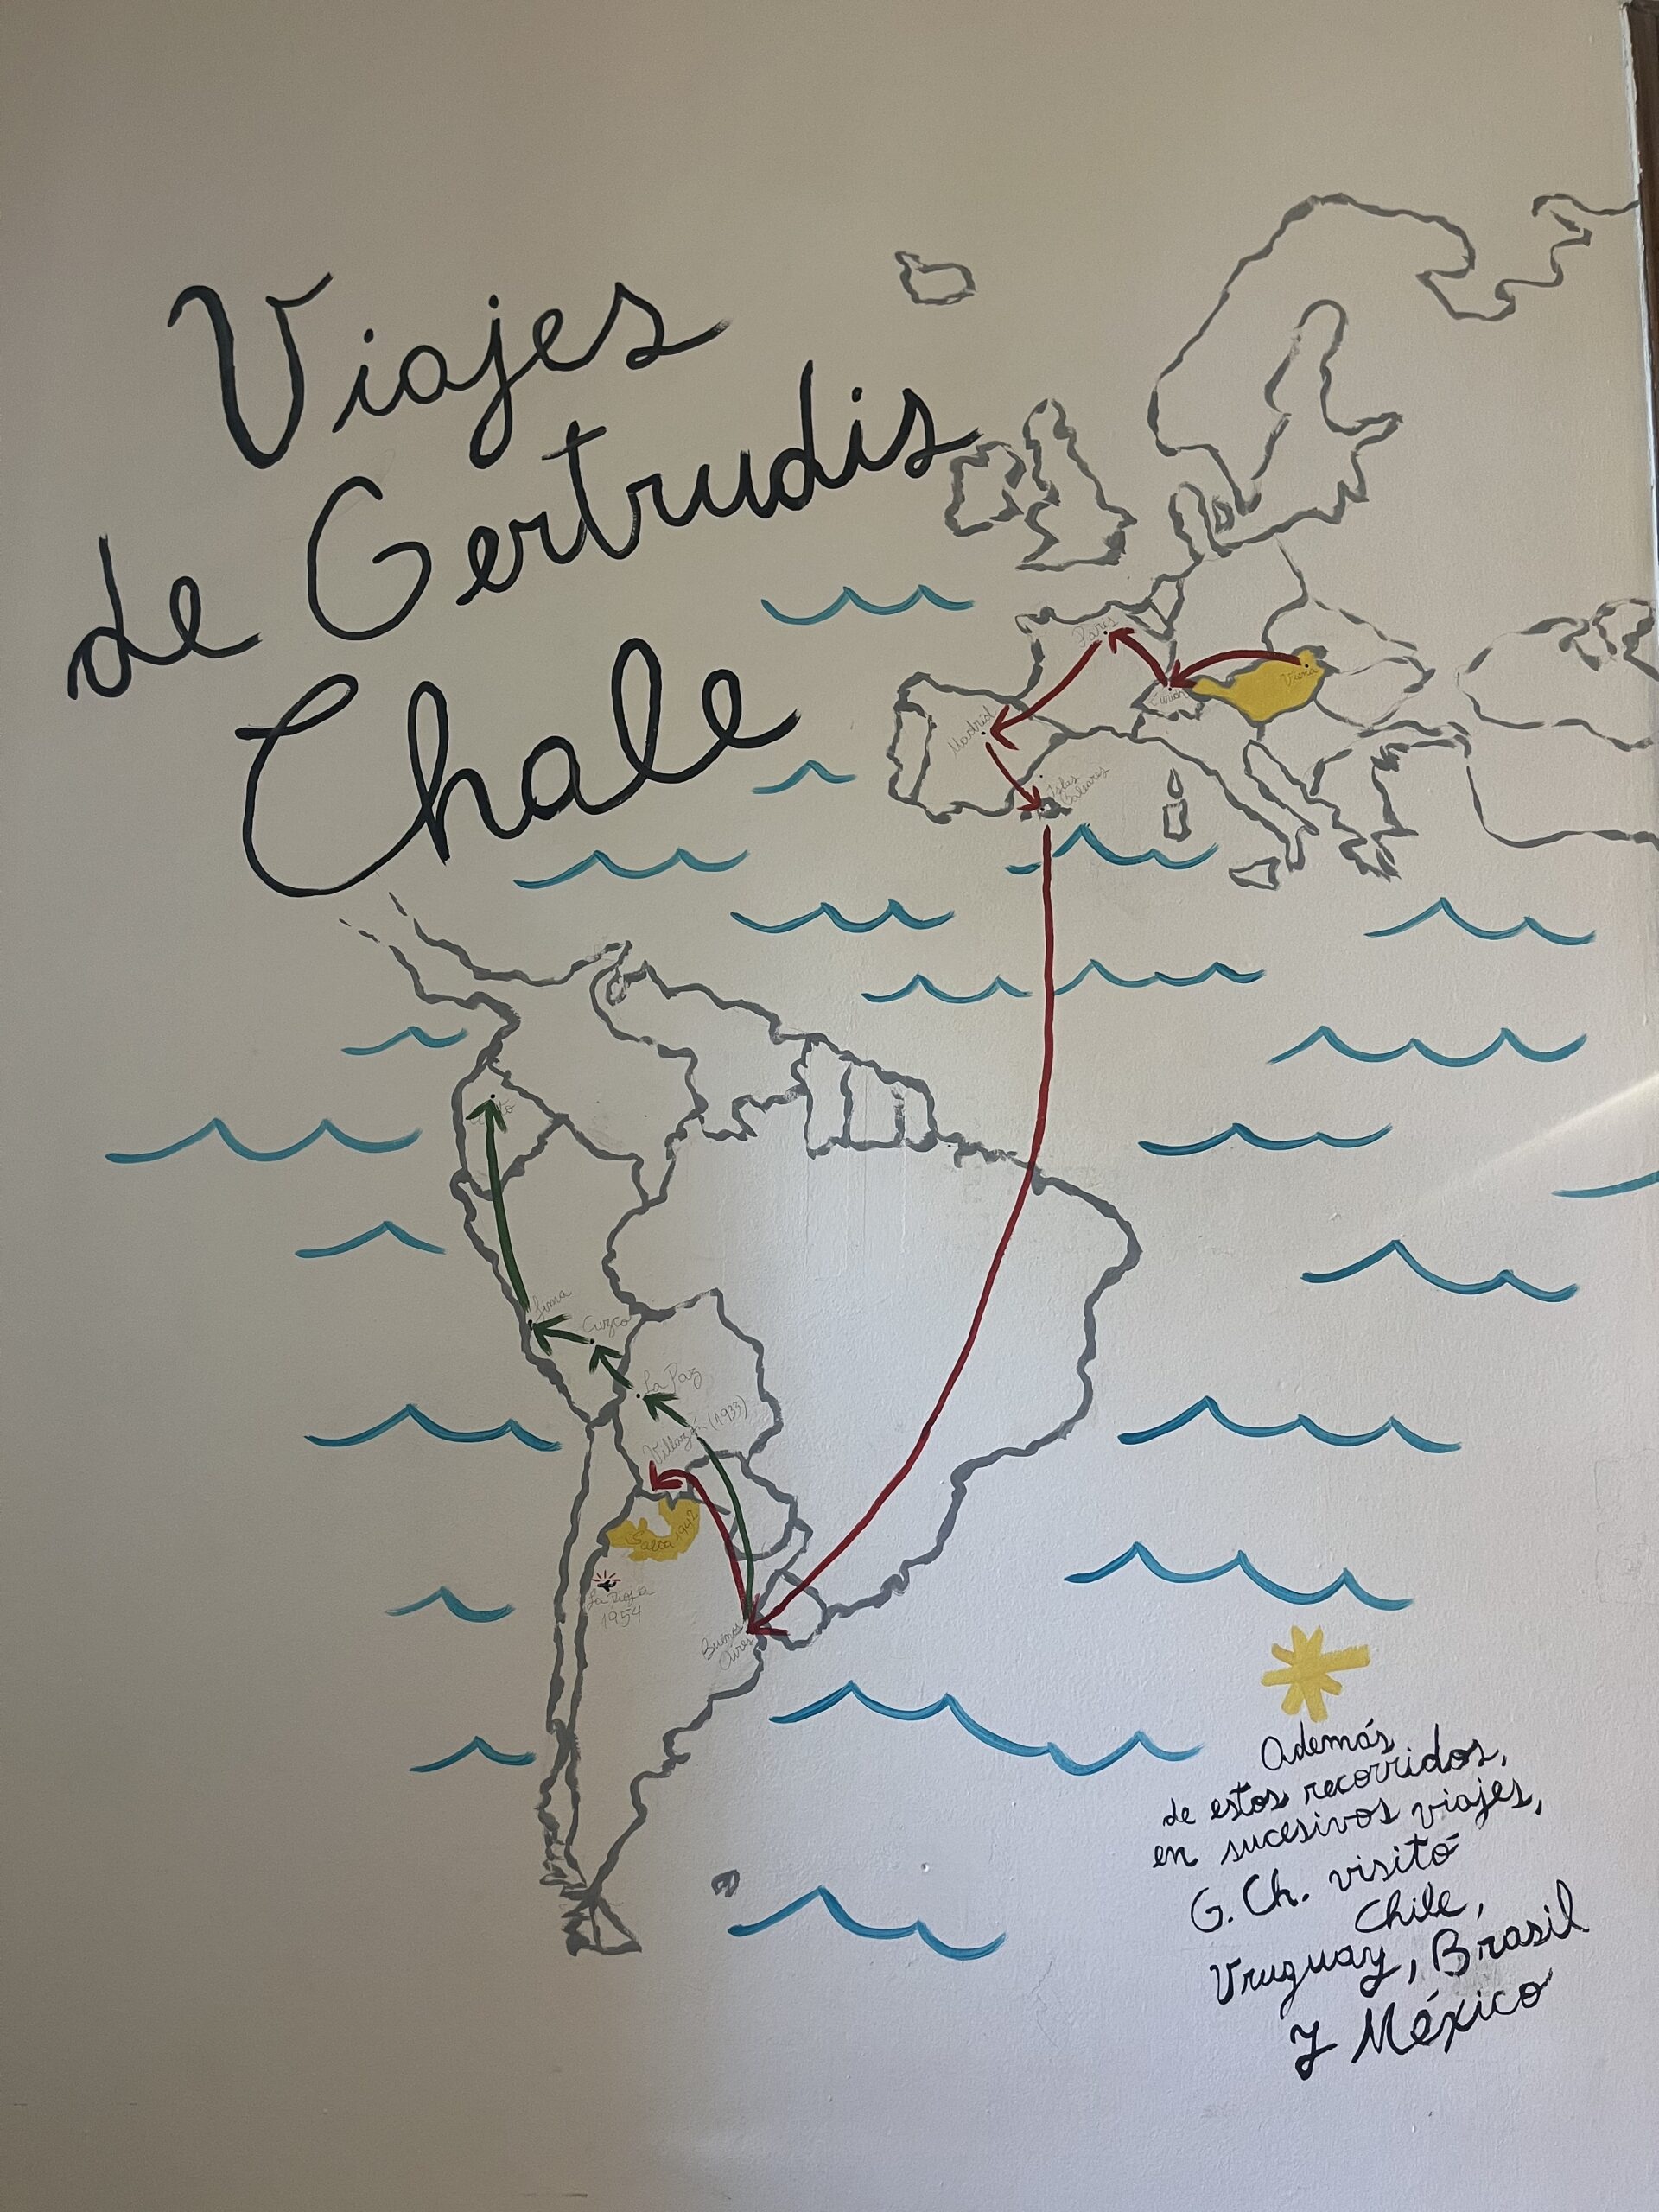 Viajes
de Gertrudis
Chale
París
Viena
Madrid
Islas
Baleares
Lima
Cuzco
La Paz
Villazón (1933)
Salta 1942
La Rioja
1954
Buenos
Aires
Además
de estos recorridos,
en sucesivos viajes,
G. Ch. visitó
Chile,
Uruguay, Brasil
y México